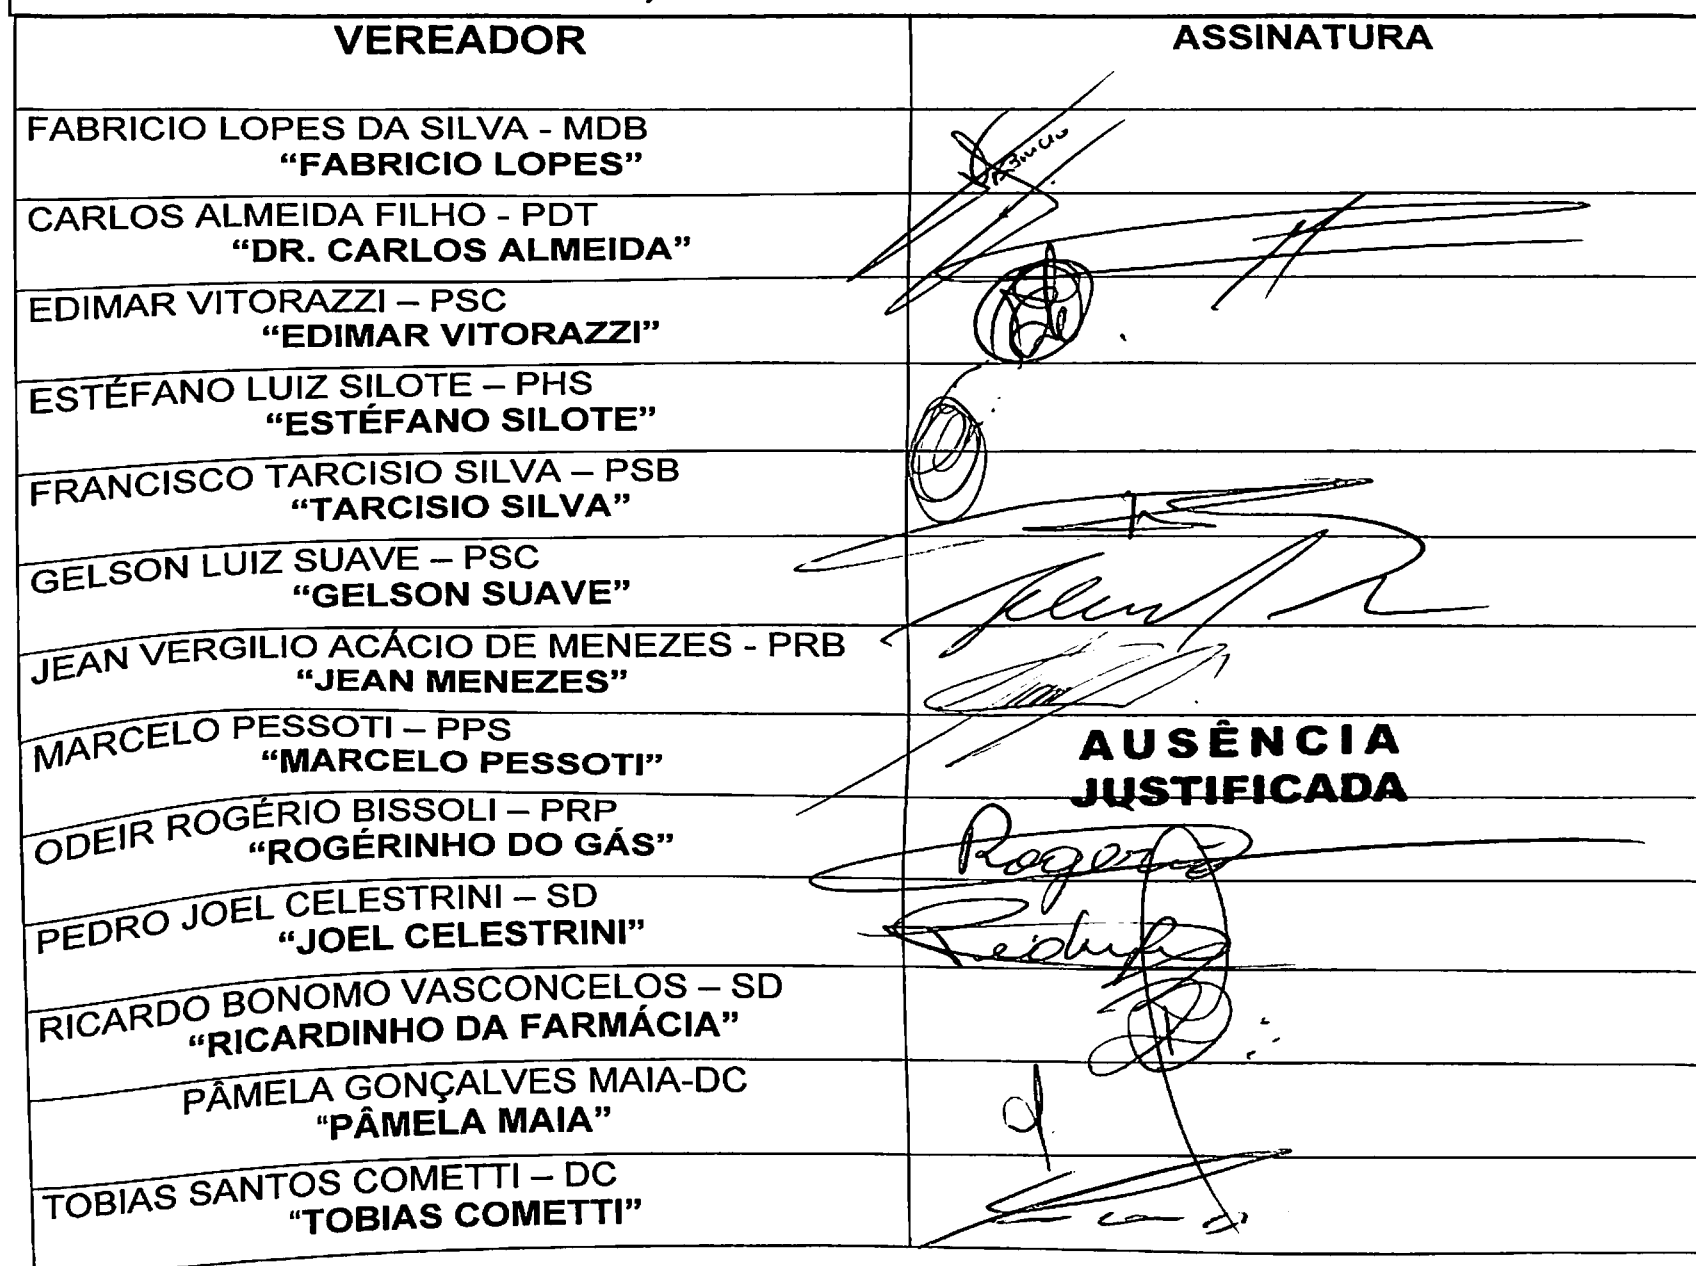 VEREADOR
ASSINATURA
FABRICIO LOPES DA SILVA - MDB
“FABRICIO LOPES”
CARLOS ALMEIDA FILHO - PDT
“DR. CARLOS ALMEIDA”
EDIMAR VITORAZZI – PSC
“EDIMAR VITORAZZI”
ESTÉFANO LUIZ SILOTE – PHS
“ESTÉFANO SILOTE”
FRANCISCO TARCISIO SILVA – PSB
“TARCISIO SILVA”
GELSON LUIZ SUAVE – PSC
“GELSON SUAVE”
JEAN VERGILIO ACÁCIO DE MENEZES - PRB
“JEAN MENEZES”
MARCELO PESSOTI – PPS
“MARCELO PESSOTI”
AUSÊNCIA
JUSTIFICADA
ODEIR ROGÉRIO BISSOLI – PRP
“ROGÉRINHO DO GÁS”
PEDRO JOEL CELESTRINI – SD
“JOEL CELESTRINI”
RICARDO BONOMO VASCONCELOS – SD
“RICARDINHO DA FARMÁCIA”
PÂMELA GONÇALVES MAIA-DC
“PÂMELA MAIA”
TOBIAS SANTOS COMETTI – DC
“TOBIAS COMETTI”